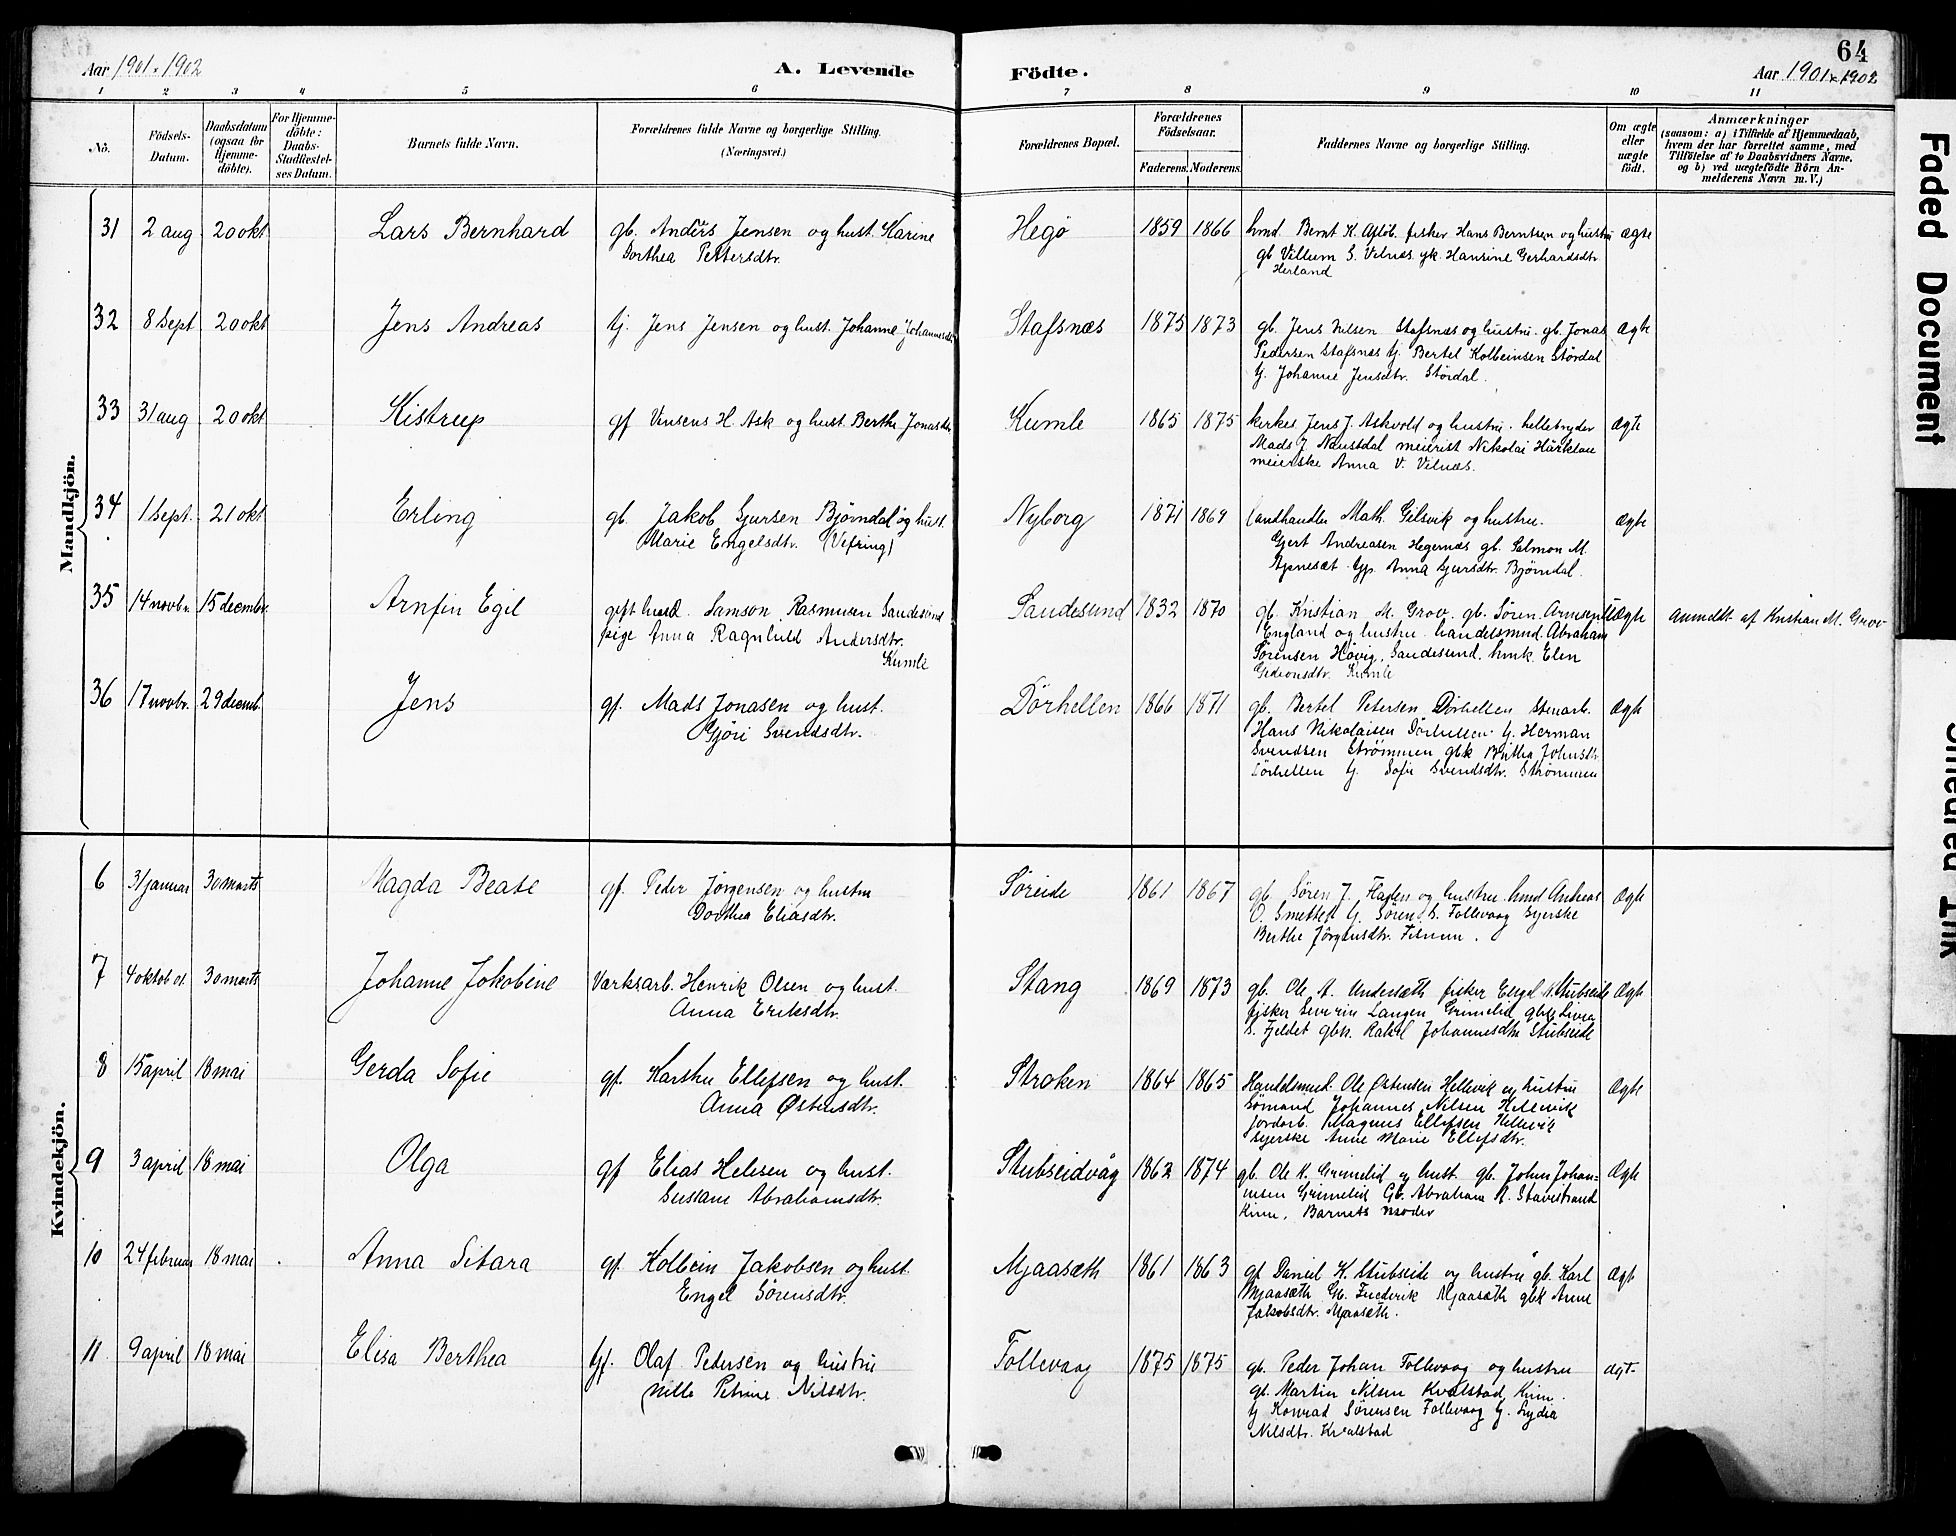 64
Aar 1901 - 1902 A. Levende Födte. Aar 1901 - 1902
1 2 3 4 5 6 7 8 9 10 11
No. Födsels-Datum. Daabsdatum (ogsaa for Hjemmedöbte). For Hjemmedöbte: Daabs-Stadfæstelses Datum. Barnets fulde Navn. Forældrenes fulde Navne og borgerlige Stilling. (Næringsvei.) Forældrenes Bopæl. Forældrenes Födselsaar. Faderens. Moderens. Faddernes Navne og borgerlige Stilling. Om ægte eller uægte födt. Anmærkninger (saasom: a) i Tilfælde af Hjemmedaab, hvem der har forrettet samme, med Tilföielse af to Daabsvidners Navne. og b) ved uægtefödte Börn Anmelderens Navn m. V.)
Mandkjön.
31 2 aug 20 okt Lars Bernhard gb. Anders Jensen og hust. Karine Hegö 1859 1866 Bernt K. fisker Hans Berntsen og hustru ægte
Dorthea Pettersdtr. gb Villum S. Vilnæs gk. Hansine Gerhardsdtr
Herland
32 8 sept 20 okt Jens Andreas tj. Jens Jensen og hust. Johanne Johannesdtr Stafsnæs 1875 1873 gb. Jens Nilsen Stafsnæs og hustru. gb. Jonas ægte
Pedersen Stafsnæs tj. Bertel Kolbeinsen Stördal
tj. Johanne Jensdtr. Stördal.
33 31 aug 20 okt Kistrup gf Vinsens H. Ask og hust Berthe Jonasdtr Kumle 1865 1875 kirkes. Jens J. Askvold og hustru. hellebryder ægte
Mads J. Naustdal meierist Nikolai
meierske Anna V. Vilnæs.
34 1 sept. 21 okt Erling gb. Jakob Gjersen Bjørndal og hust. Nyborg 1871 1869 Landhandler Math. Gilsvik og hustru. ægte
Marie Engelsdtr. (Vefring) Gjert Andreasen Hegernæs gb. Salmon M.
Anna Gjersdtr. Bjørndal.
35 14 novbr. 15 decembr. Arnfin Egil gift Samson Rasmusen Sandesund Sandesund 1832 1870 gb. Kristian M. Grov. gb. Søren Uægte Anmeldt af Kristian M. Grov
pige Anna Ragnhild Andersdtr. England og hustru. handelsmnd. Abraham
Kumle Sørensen Høvig, Sandesund. Elen
Gidionsdtr. Kumle
36 17 novbr. 29 decemb. Jens gf. Mads Jonasen og hust. Dörhellen 1866 1871 gb. Bertel Petersen Dörhellen Stenarb. ægte
Gjöri Svendsdtr. Hans Nikolaisen Dörhellen tj. Herman
Svendsen Strømmen gbk Brithe Johnsdtr.
Dörhellen tj. Sofie Svendsdtr. Strømmen
Kvindekjön.
6 31 januar 30 marts Magda Beate gf. Peder Jörgensen og hustru Søreide 1861 1867 gb. Søren J. og hustru. Andreas ægte
Dorthea Eliasdtr. O. tj. Sören S. Follevaag Syerske
Berthe Jörgensdtr.
7 4 oktob 30 marts Johanne Jokobine Værksarb. Henrik Olsen og hust. Stang 1869 1873 gb. Ole A. fisker Engel Stubseide ægte
Anna Eriksdtr. fisker Severin Langen Grimelid gbk
S. Fjeldet gbk. Rakel Johannesdtr Stubseide
8 15 april 18 mai Gerda Sofie gf. Karsten Ellefsen og hust. Stroken 1864 1865 Handelsmnd. Ole Østensen Hellevik og hustru ægte
Anna Østensdtr. Sömand Johannes Nilsen Hellevik
Jordarb. Magnus Ellefsen Hellevik
Syerske Anne Marie Ellefsdtr.
9 3 april 18 mai Olga gf Elias Helesen og hust. Stubseidvåg 1862 1874 gb. Ole K. Grimelid og hust. gb. Johan Johan- ægte
Susane Abrahamsdtr. nesen Grimelid Gb. Abraham A. Stavestrand
Kinn, Barnets moder
10 24 februar 18 mai Anna Sitara gf. Kolbein Jakobsen og hust. Mjaasæth 1861 1863 gf Daniel K. Stubseide og hustru gb. Karl ægt
Engel Sörensdtr. Mjaasæth Gb. Fredrik Mjaasæth gbk Anne
Jakobsdtr. Mjaasæth.
11 9 april 18 mai Elisa Berthea tj. Olaf Pedersen og hustru Follevaag 1875 1875 gb. Peder Johan Follevaag og hustru ægt-
Nille Petrine Nilsdtr. gb. Martin Nilsen Kvalstad, Kinn.
tj Konrad Sørensen Follevaag tj. Lydia
Nilsdtr. Kvalstad
Faded Document
Smeared Ink